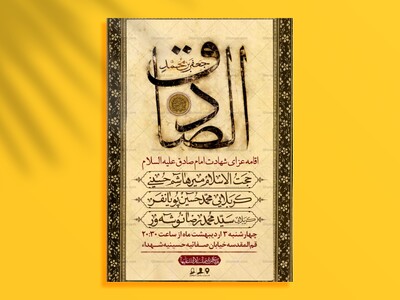 جعفر بن محمد
الصادق
اقامه عزای شهادت امام صادق علیه السلام
حجت الاسلام میرهاشم حسینی
کربلایی محمدحسین پویانفر
کربلایی سید محمدرضا نوشه ور
چهارشنبه ۳ اردیبهشت ماه از ساعت ۲۰:۳۰
قم المقدسه خیابان صفائیه حسینیه شهداء